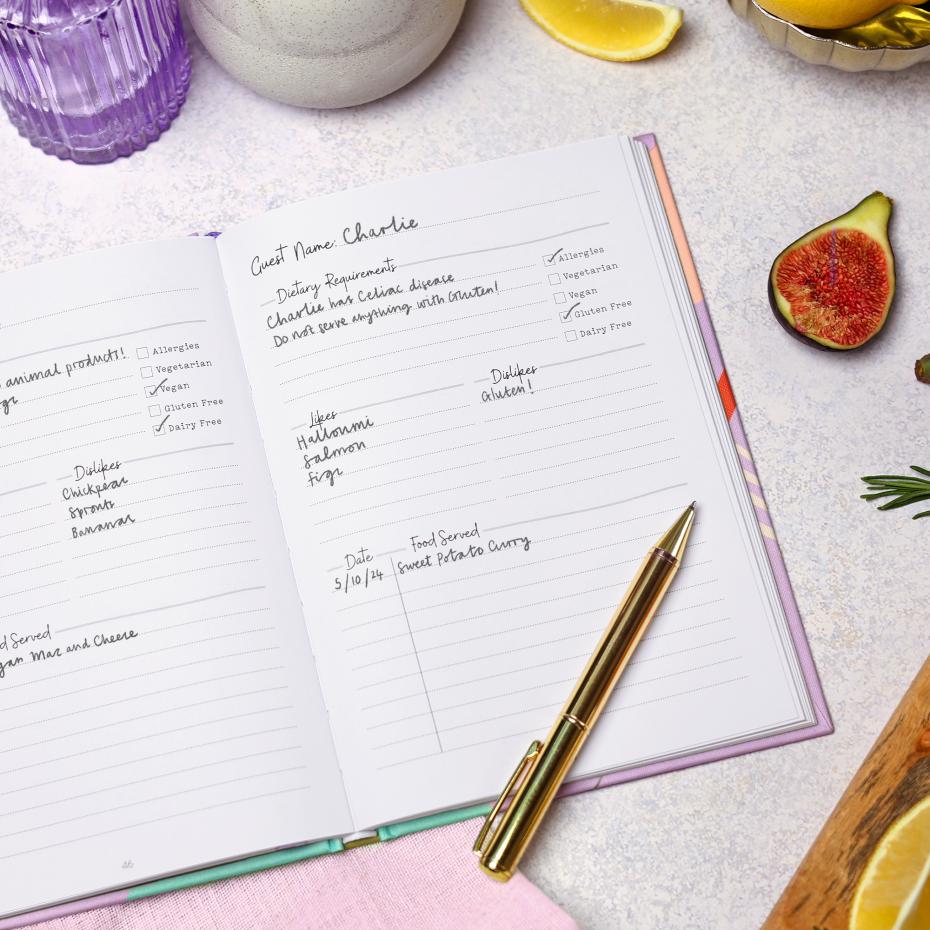 animal products!
Allergies
Vegetarian
Vegan
Gluten Free
Dairy Free
Dislikes
Chickpeas
Sprouts
Bananas
Served
Mac and Cheese
46
Guest Name: Charlie
Dietary Requirements
Charlie has Celiac disease
Do not serve anything with Gluten!
Allergies
Vegetarian
Vegan
Gluten Free
Dairy Free
Likes
Halloumi
Salmon
Figs
Dislikes
Gluten!
Date
Food Served
5/10/24
Sweet Potato Curry